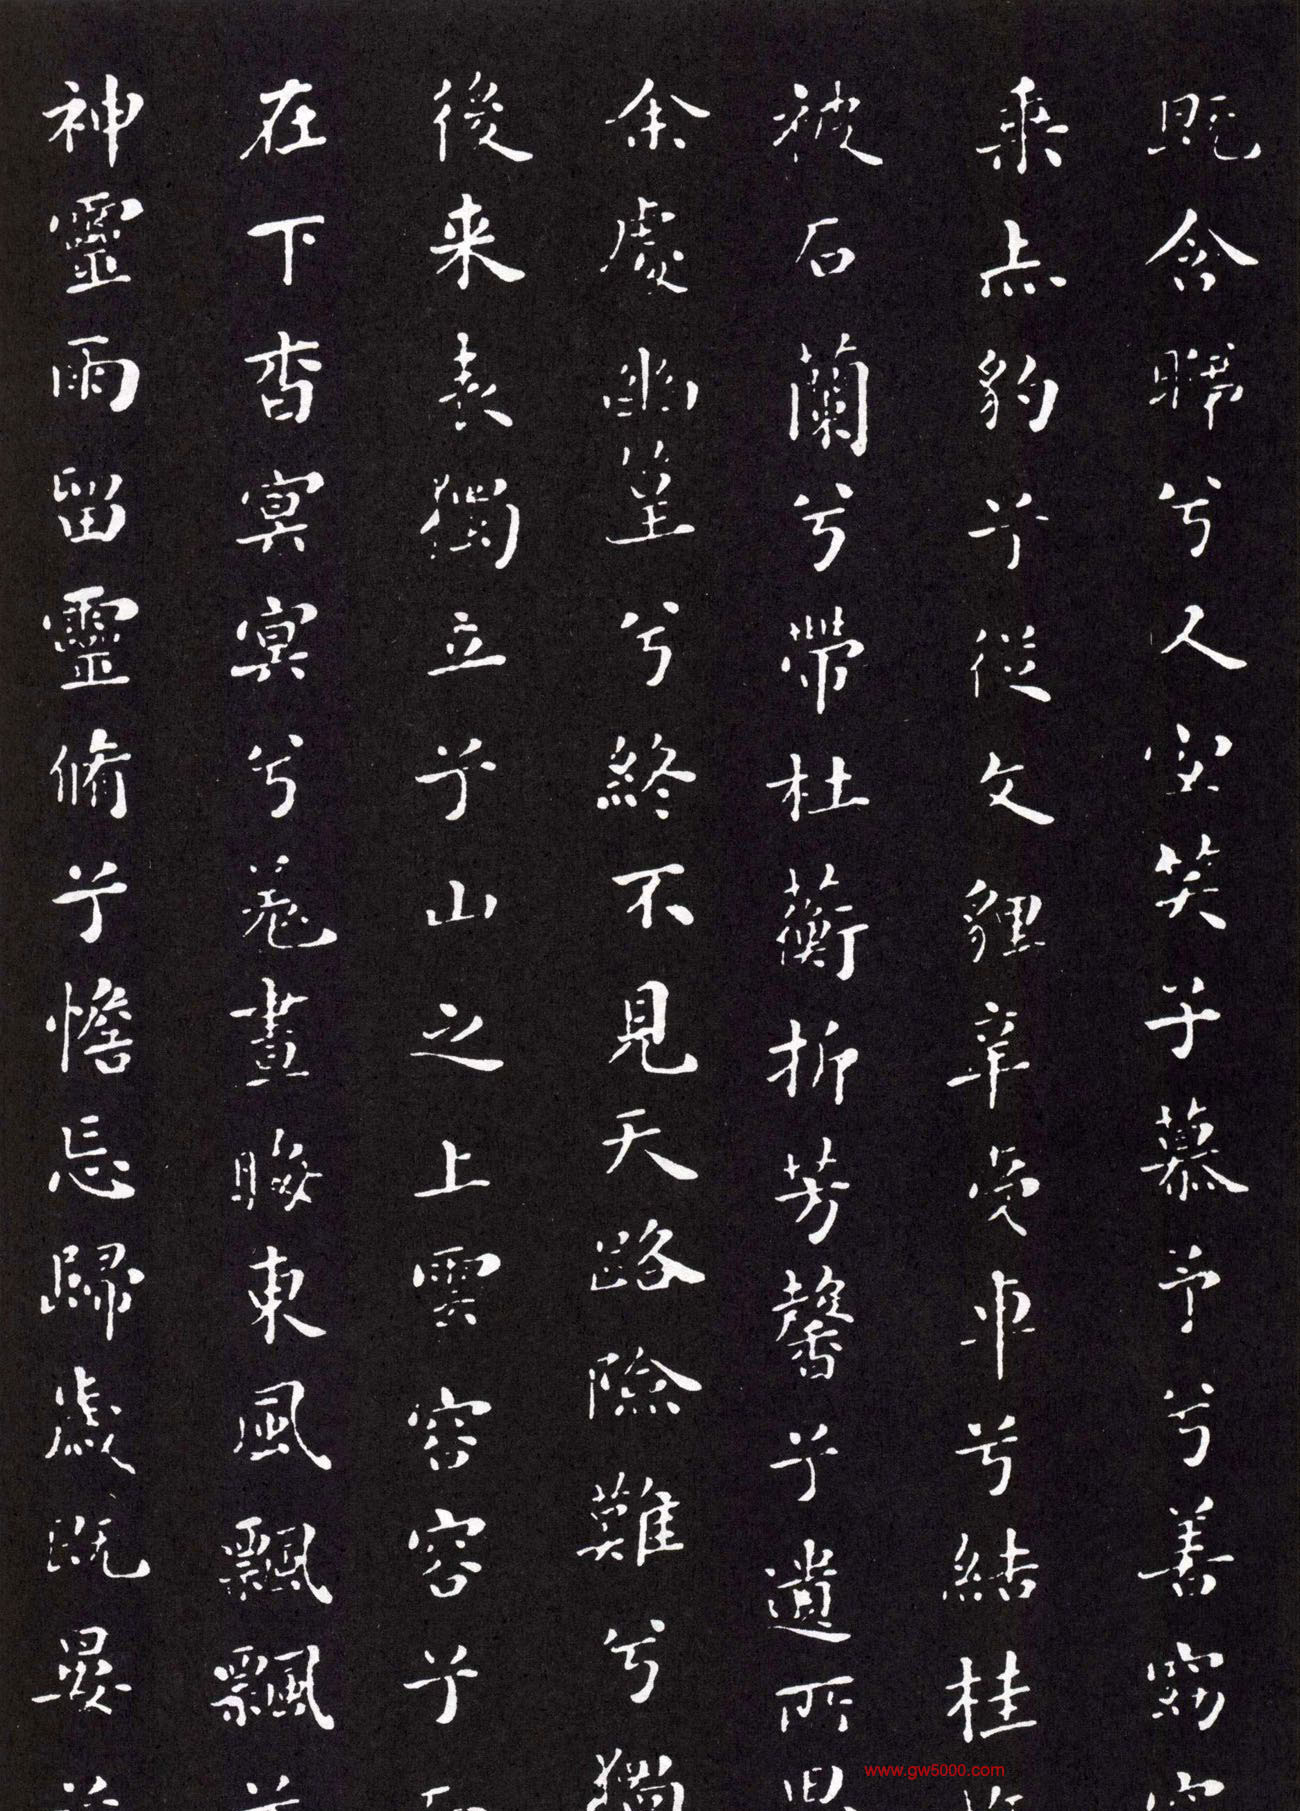 既含睇兮人宜笑子慕予兮善窈窕
乘赤豹兮從文貍辛夷車兮結桂
被石蘭兮帶杜蘅折芳馨兮遺所思
余處幽篁兮終不見天路險難兮獨
後来表獨立兮山之上雲容容兮而
在下杳冥冥兮羌晝晦東風飄飄兮
神靈雨留靈脩兮憺忘歸歲既晏
www.gw5000.com